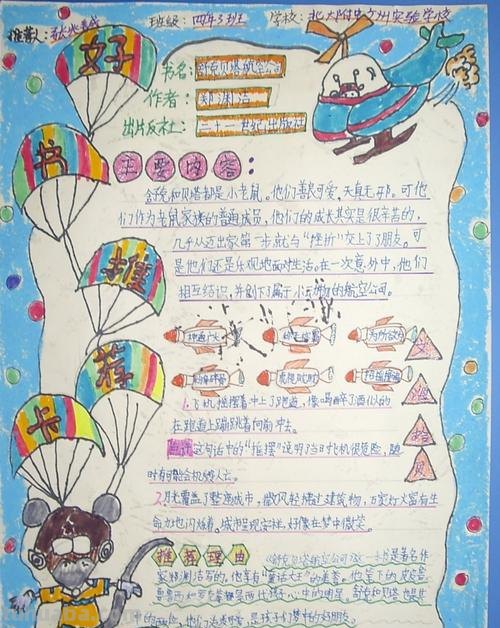 推荐人: 班级: 四年3班 学校: 北大附中广州实验学校
好书推荐卡
书名: 舒克贝塔航空公司
作者: 郑渊洁
出片反社: 二十一世纪出版社
主要内容:
舒克和贝塔都是小老鼠。他们善良可爱,天真无邪。可他
们作为老鼠家族的普通成员,他们的成长其实是很辛苦的,
几乎从迈出家第一步就与“挫折”交上了朋友。可
是他们还是乐观地面对生活。在一次意外中,他们
相互结识,并创下了属于小动物的航空公司。
为所欲为
1.飞机摇摆着冲上了跑道,像喝醉了酒似的
在跑道上蹦跳着向前冲去。
这句话中的“摇摆”说明了当日飞机很危险,随
时有可能会机毁人亡。
2.月光覆盖了整座城市,微风轻拂过建筑物,万家灯火富有生
命力地闪烁着。城市呈现安祥,好像在梦中微笑。
推荐理由
《舒克贝塔航空公司》这一书是著名作
家郑渊洁写的,他享有“童话大王”的美誉。他笔下的皮皮鲁、
鲁西西和罗克都是两代孩子心中的明星,舒克和贝塔也是其
中的两位。他们活泼可爱,是孩子们梦中的好朋友。